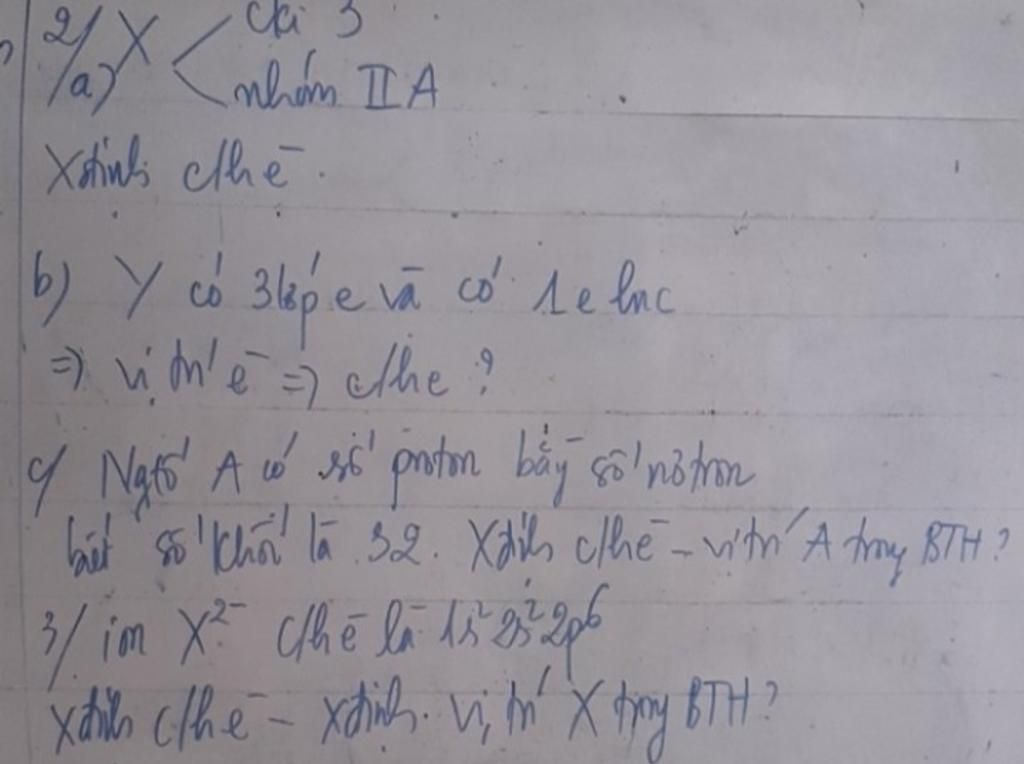 2/ X < Cki 3
a) nhóm IIA
Xđinh c/hē.
b) Y có 3 lớp e và có 1e lnc
=> vị trí ē => c/he ?
c/ Ngtố A có số proton bằng số nơtron
biết số khối là 32. Xđinh c/hē - vị trí A trong BTH?
3/ ion X²⁻ c/hē là 1s²2s²2p⁶
xđinh c/hē - xđinh vị trí X trong BTH?